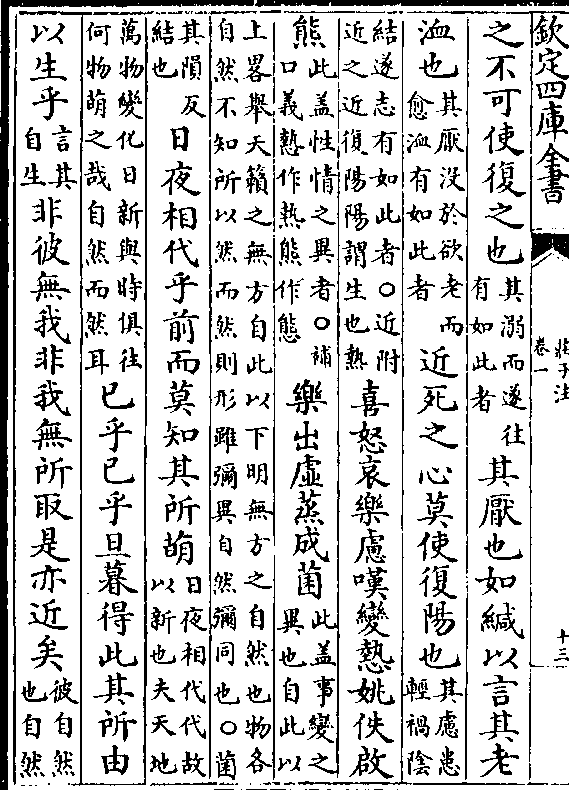 欽定四庫全書
莊子注
卷一
十三
之不可使復之也其溺而遂往有如此者其厭也如緘以言其老
洫也其厭沒於欲老而愈洫有如此者近死之心莫使復陽也其慮患輕禍陰
結遂志有如此者○近附近之近復陽陽謂生也熱喜怒哀樂慮嘆變熱姚佚啟
熊此蓋性情之異者○補口義慹作熱熊作態樂出虛蒸成菌此蓋事變之異也自此以
上畧舉天籟之無方自此以下明無方之自然也物各自然不知所以然而然則形雖彌異自然彌同也○菌
其隕反結也日夜相代乎前而莫知其所萌日夜相代代故以新也夫天地
萬物變化日新與時俱往何物萌之哉自然而然耳已乎已乎旦暮得此其所由
以生乎言其自生非彼無我非我無所取是亦近矣彼自然也自然